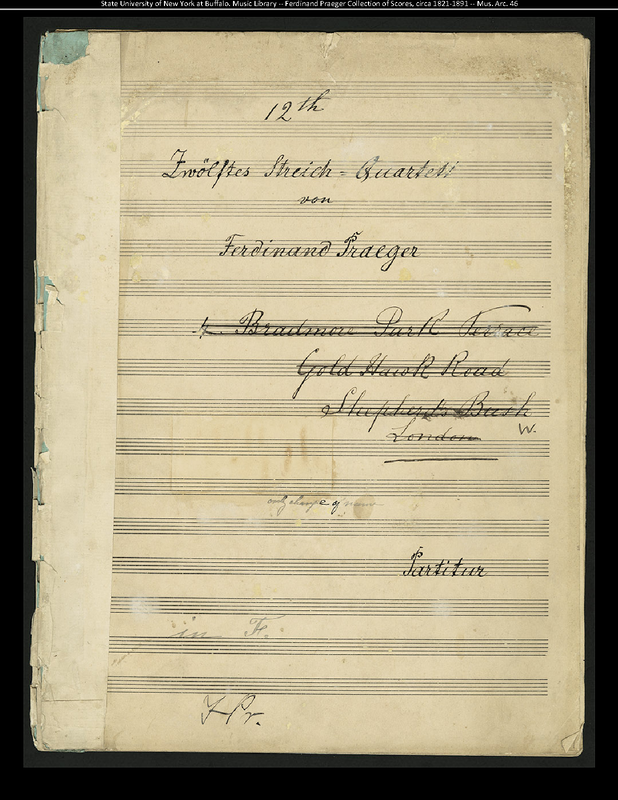 State University of New York at Buffalo. Music Library -- Ferdinand Praeger Collection of Scores, circa 1821-1891 -- Mus. Arc. 46
12th
Zwölftes Streich=Quartett
von
Ferdinand Praeger
4. Bradmore Park Terrace
Gold Hawk Road
Shepherd's Bush
London W.
only change of
Partitur
in F.
F Pr.